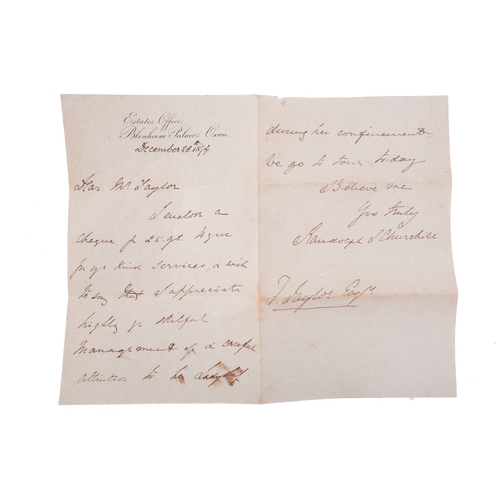 Estates Office,
Blenheim Palace, Oxon.
December 28th 1874
Dear Mr. Taylor
I enclose a
cheque for 25 gs
for yr kind services, & wish
to say that I appreciate
highly yr skilful
management of & careful
attention to her Ladyship
during her confinement
We go to town today
Believe me
Yrs truly
Randolph S Churchill
T. Taylor Esqr